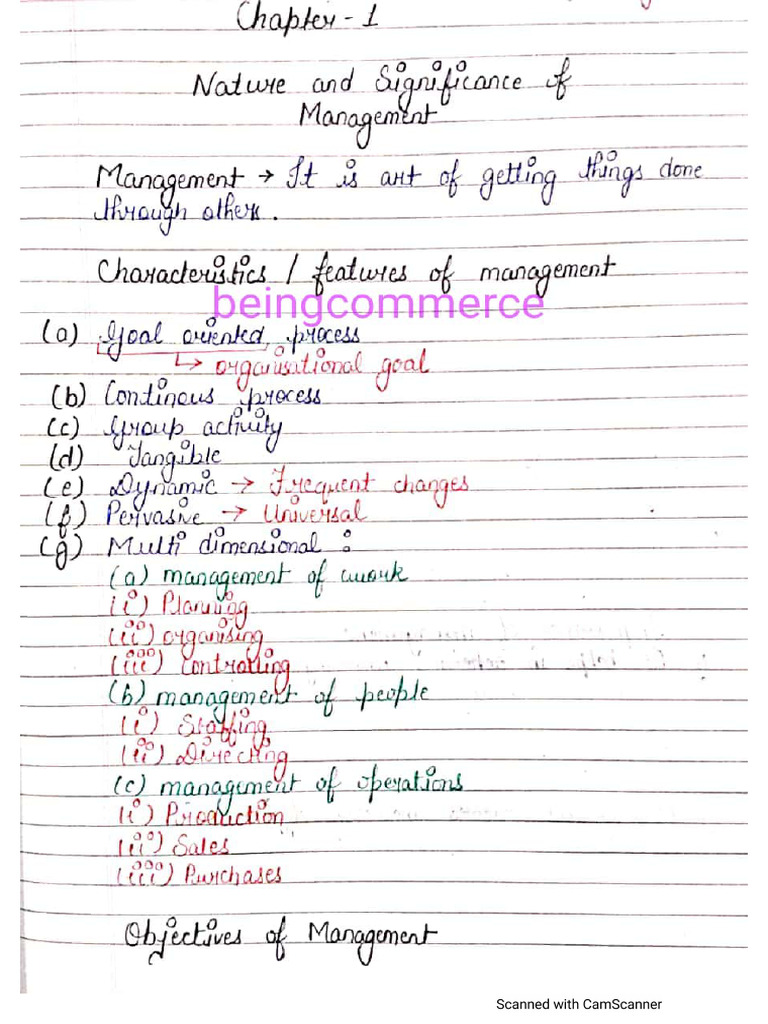 Chapter - 1
Nature and Significance of
Management
Management → It is art of getting things done
through others.
Characteristics / features of management
beingcommerce
(a) Goal oriented process
↳ organisational goal
(b) Continous process
(c) Group activity
(d) Tangible
(e) Dynamic → Frequent changes
(f) Pervasive → Universal
(g) Multi dimensional :
(a) management of work
(i) Planning
(ii) organising
(iii) Controlling
(b) management of people
(i) Staffing
(ii) Directing
(c) management of operations
(i) Production
(ii) Sales
(iii) Purchases
Objectives of Management
Scanned with CamScanner